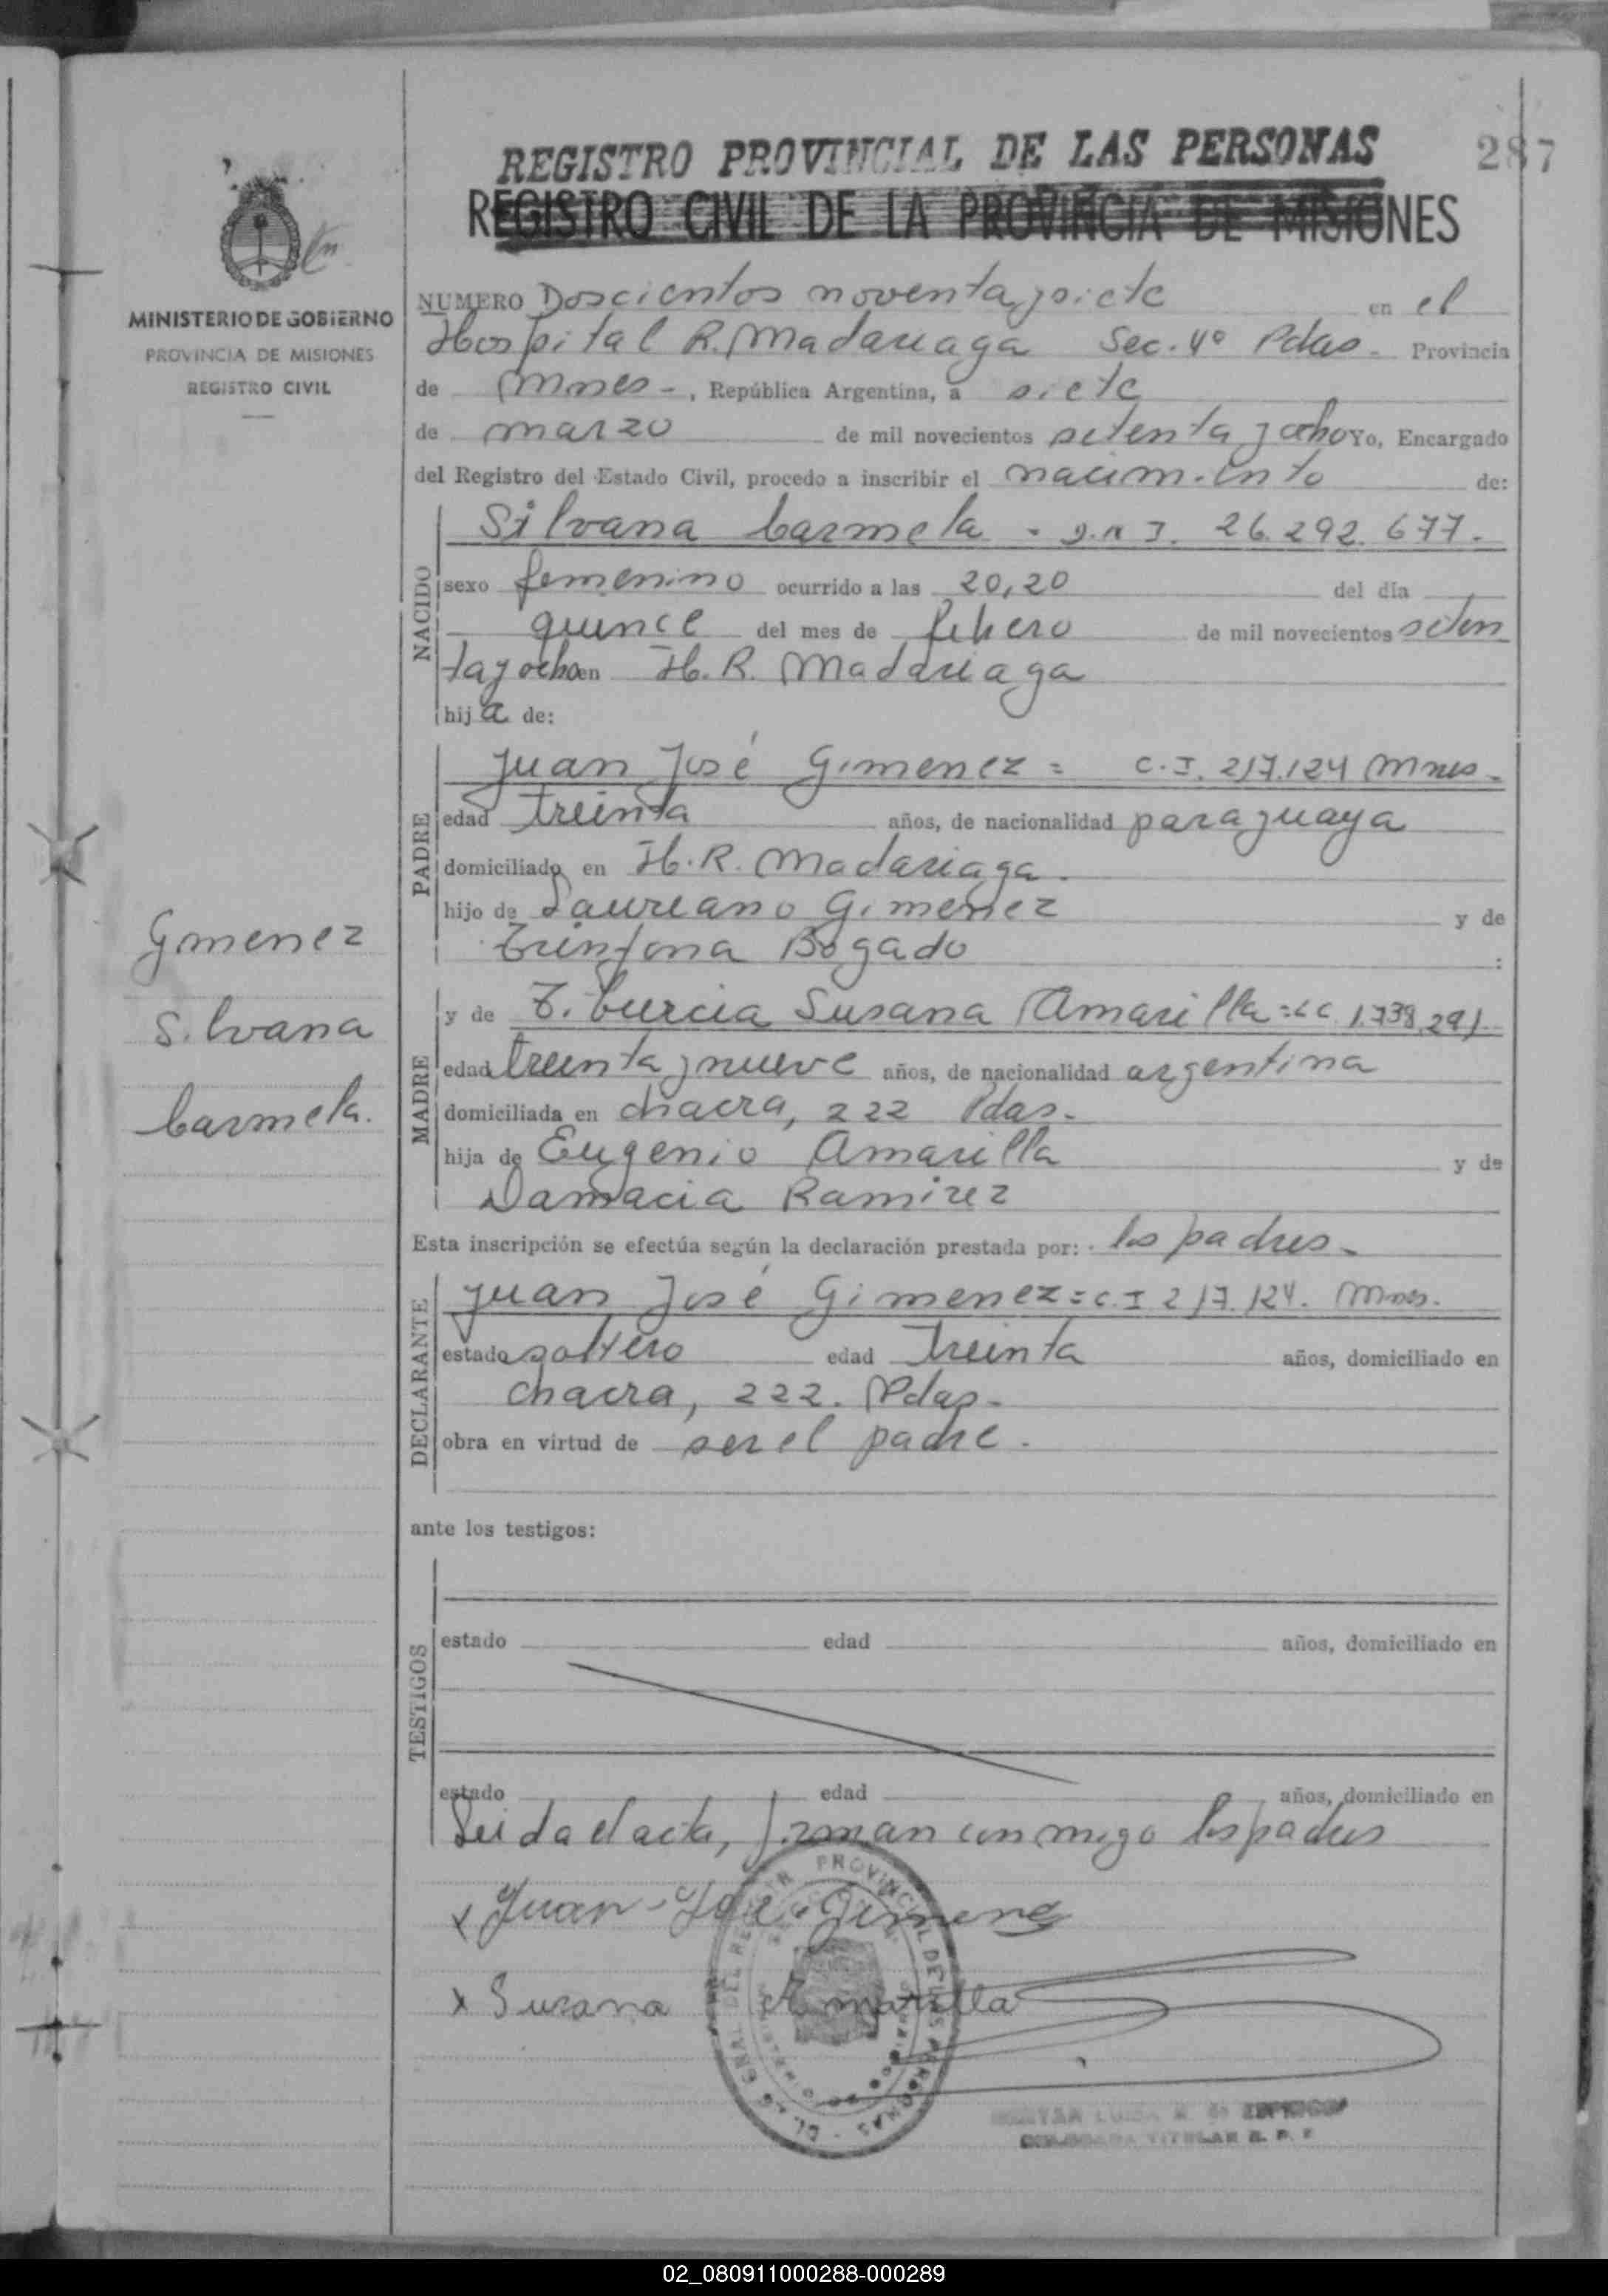 287
REGISTRO PROVINCIAL DE LAS PERSONAS
REGISTRO CIVIL DE LA PROVINCIA DE MISIONES
MINISTERIO DE GOBIERNO
PROVINCIA DE MISIONES
REGISTRO CIVIL
NUMERO Doscientos noventa y siete en el
Hospital R. Madariaga Sec. 4º Pdas. Provincia
de Mnes -, República Argentina, a siete
de marzo de mil novecientos setenta y ocho Yo, Encargado
del Registro del Estado Civil, procedo a inscribir el nacimiento de:
NACIDO
Silvana Carmela - D.N.I. 26.292.677.
sexo femenino ocurrido a las 20,20 del día
quince del mes de febrero de mil novecientos seten
ta y ocho en H. R. Madariaga
hija de:
PADRE
Juan José Gimenez = C.I. 217.124 Mnes.
edad treinta años, de nacionalidad paraguaya
domiciliado en H. R. Madariaga.
hijo de Laureano Gimenez y de
Trinfona Bogado :
MADRE
y de Tiburcia Susana Amarilla = LC 1.738.291
edad treinta y nueve años, de nacionalidad argentina
domiciliada en chacra, 222 Pdas.
hija de Eugenio Amarilla y de
Damacia Ramirez
Esta inscripción se efectúa según la declaración prestada por: los padres.
DECLARANTE
Juan José Gimenez = C.I 217.124. Mnes.
estado soltero edad treinta años, domiciliado en
chacra, 222. Pdas.
obra en virtud de ser el padre.
ante los testigos:
TESTIGOS
estado edad años, domiciliado en
estado edad años, domiciliado en
Leida el acta, firman conmigo los padres
x Juan José Gimenez
x Susana Amarilla
TITULAR R. P. P.
Gimenez
Silvana
Carmela.
02_080911000288-000289